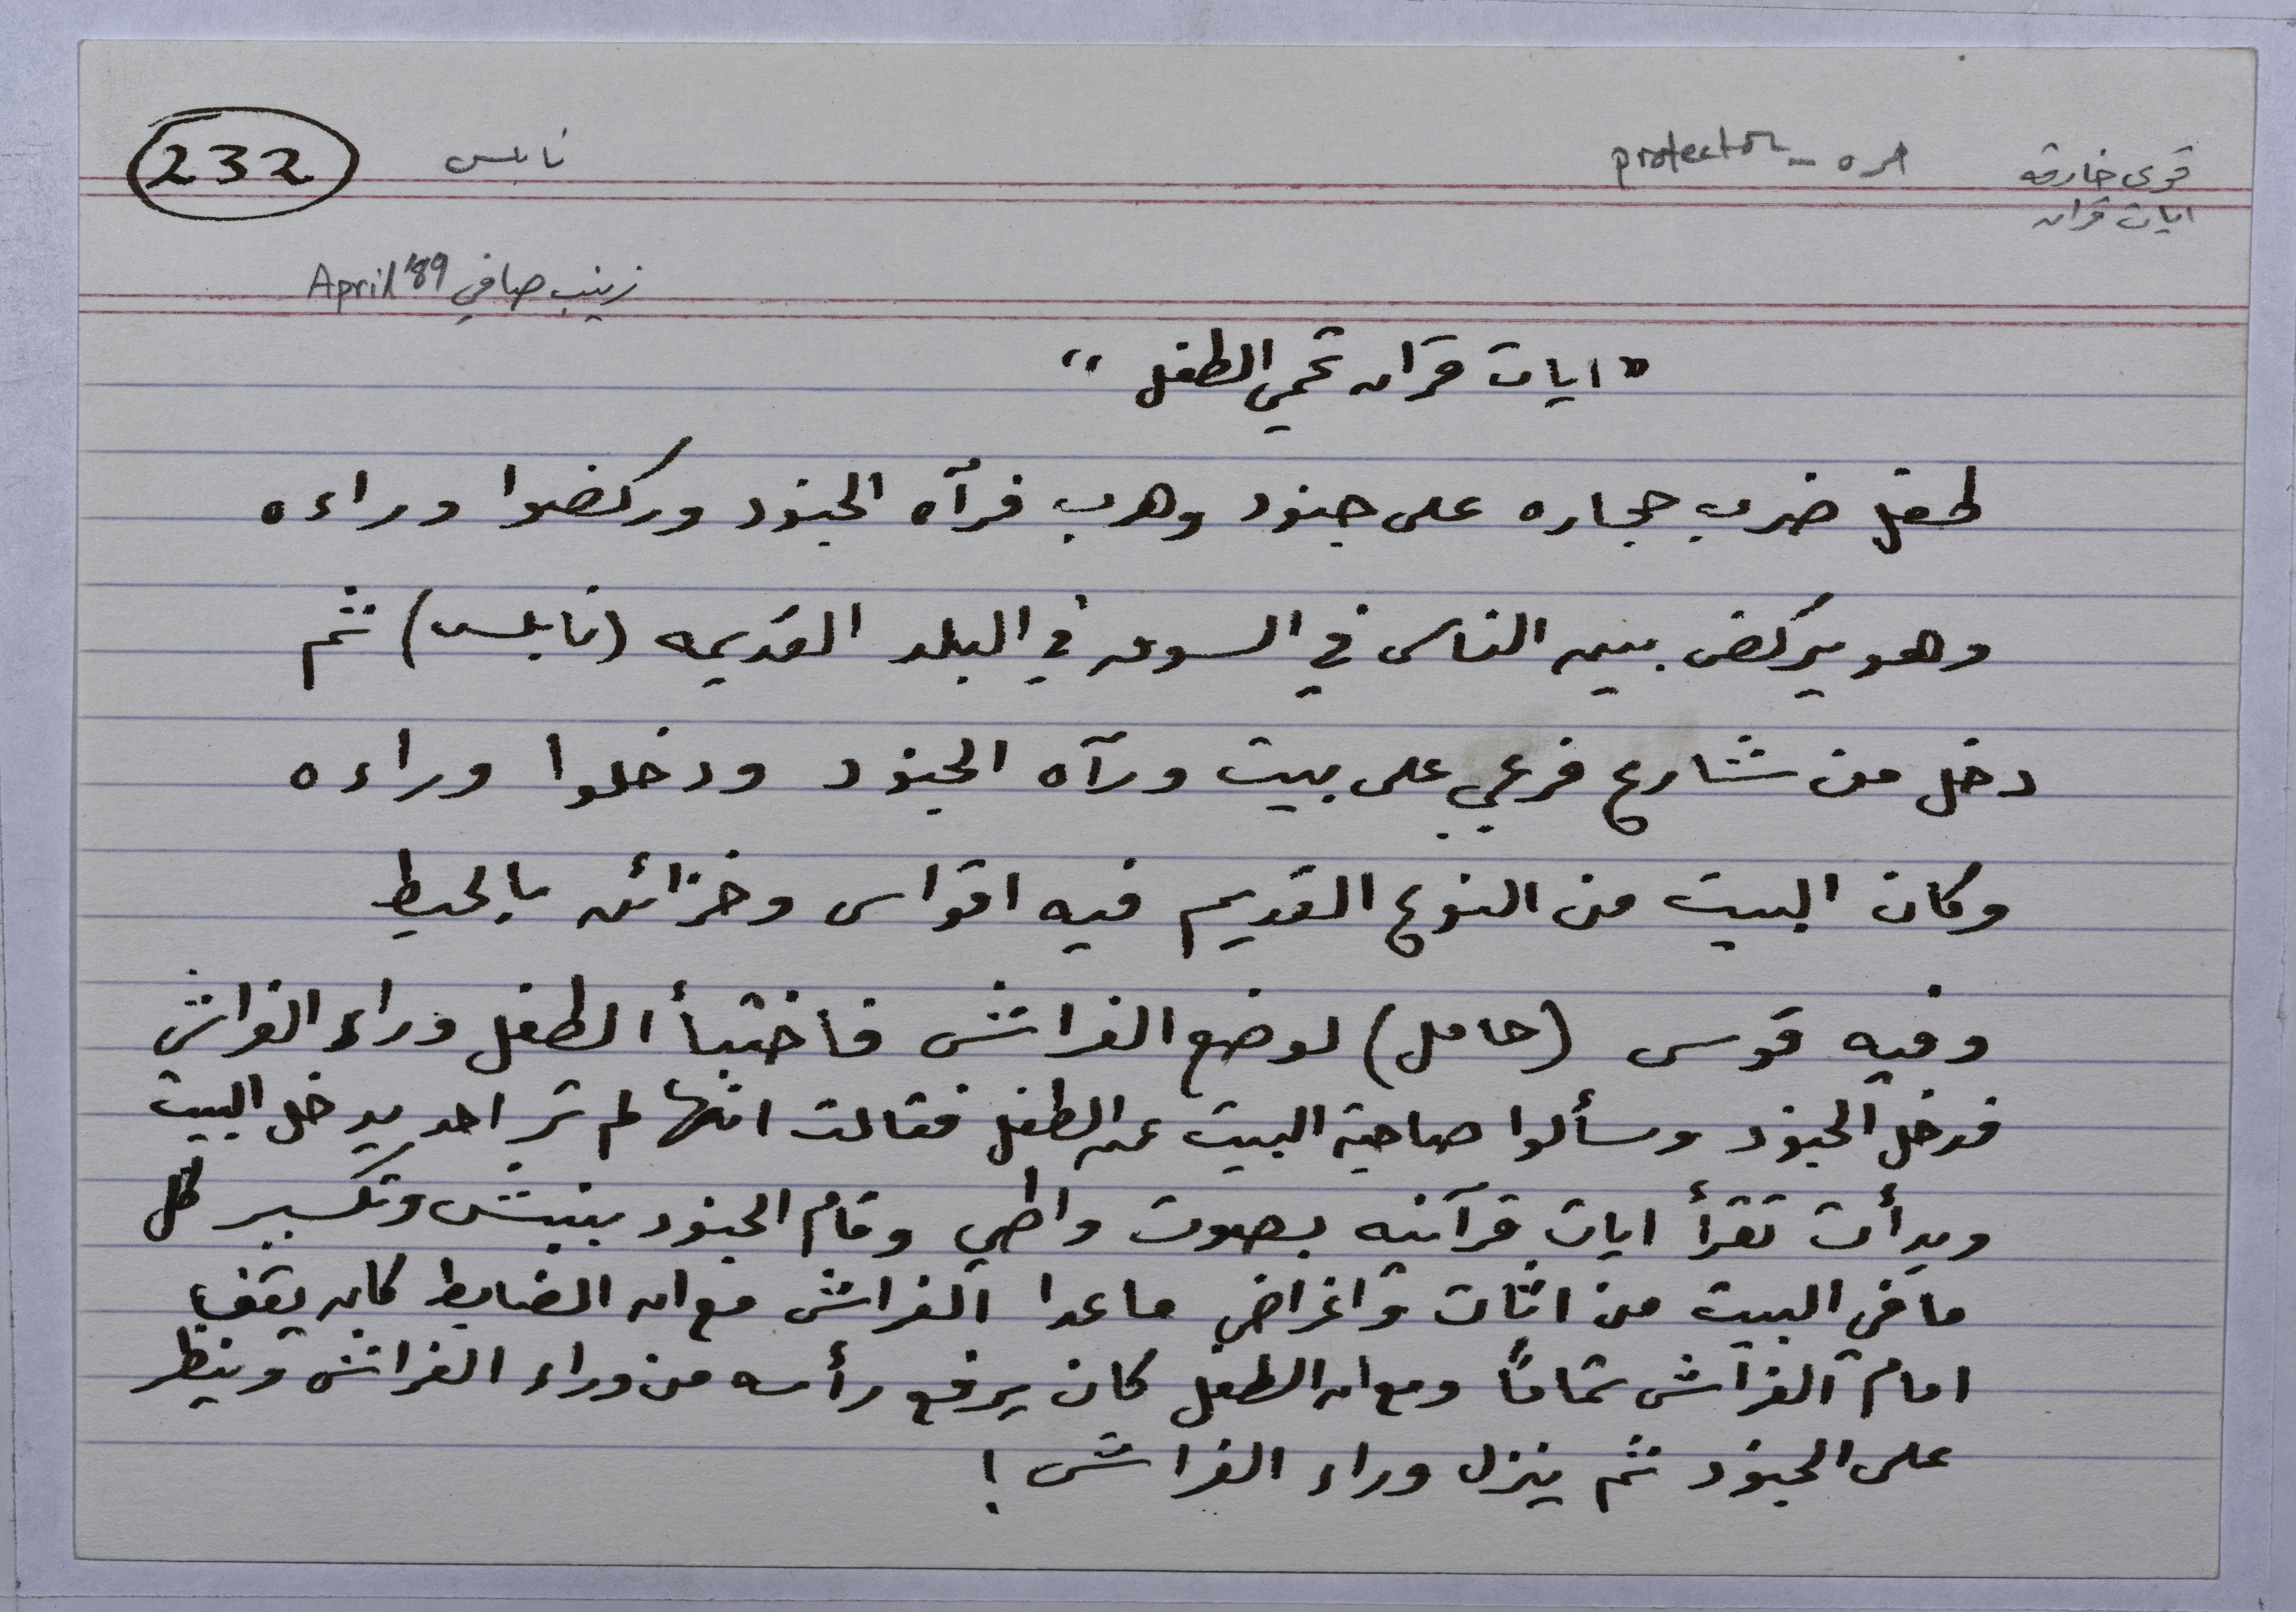 قوى خارقه
ايات قران
امره - protector
نابلس
232
زينب صافي April '89
"ايات قران تحمي الطفل"
طفل ضرب حجاره على جنود وهرب فرآه الجنود وركضوا وراءه
وهو يركض بين الناس في السوق في البلد القديمه (نابلس) ثم
دخل من شارع فرعي على بيت ورآه الجنود ودخلوا وراءه
وكان البيت من النوع القديم فيه اقواس وخزائن بالحيط
وفيه قوس (حامل) لوضع الفراش فاختبأ الطفل وراء الفراش
فدخل الجنود وسألوا صاحبة البيت عن الطفل فقالت انها لم تر احد يدخل البيت
وبدأت تقرأ ايات قرآنيه بصوت واطي وقام الجنود بنبش وتكسير كل
ما في البيت من اثاث واغراض ما عدا الفراش مع ان الضابط كان يقف
امام الفراش تماماً ومع ان الطفل كان يرفع رأسه من وراء الفراش وينظر
على الجنود ثم ينزل وراء الفراش!